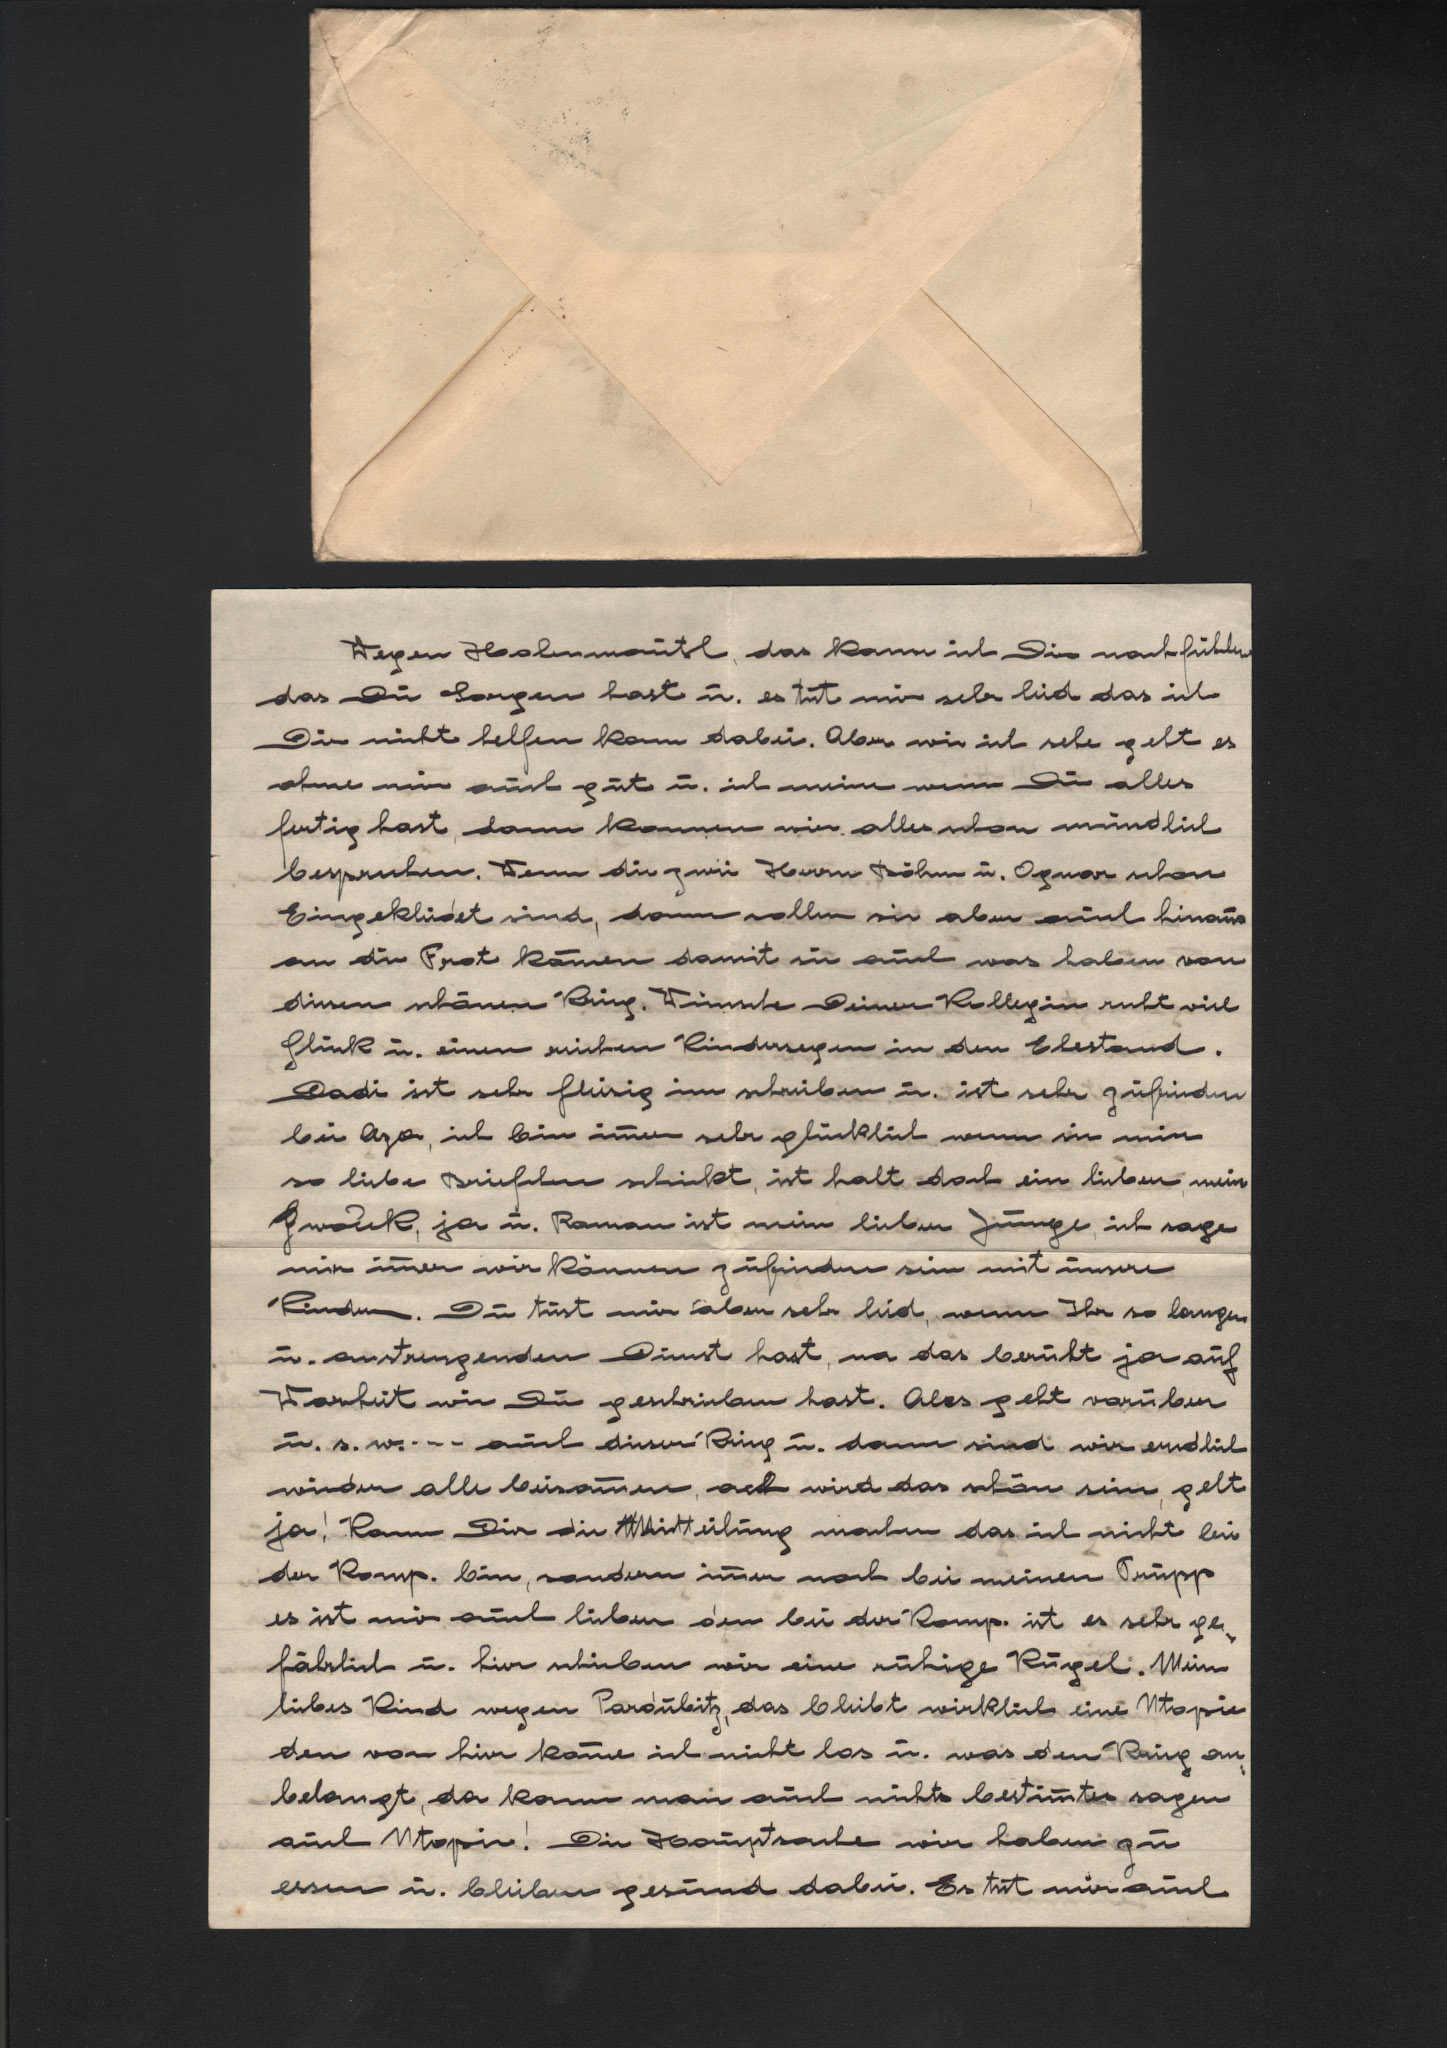 Wegen Hohenmautl, das kann ich Dir nachfühlen
das Du Sorgen hast u. es tut mir sehr leid das ich
Dir nicht helfen kann dabei. Aber wie ich sehe geht es
ohne mir auch gut u. ich meine wenn Du alles
fertig hast, dann kannen wir alles schon mündlich
besprechen. Wenn die zwei Herrn Böhm u. Ognar schon
Eingekleidet sind, dann sollen sie aber auch hinaus
an die Frot kom̄en damit sie auch was haben von
diesen schönen Krieg. Wünsche Deiner Kollegin recht viel
Glück u. einen reichen Kindersegen in den Ehestand.
Dadi ist sehr fleisig im schreiben u. ist sehr zufrieden
bei Aza, ich bin im̄er sehr glücklich wenn sie mir
so liebe Briefchen schickt, ist halt doch ein lieber, mein
ja u. Roman ist mein lieber Junge, ich sage
mir im̄er wir können zufrieden sein mit unsere
Kinder. Du tust mir aber sehr leid, wenn Ihr so langen
u. anstrengenden Dienst hast, na das beruht ja auf
Warheit wie Du geschrieben hast. Ales geht vorüber
u. s. w. --- auch dieser Krieg u. dann sind wir endlich
wieder alle beisam̄en, ach wird das schön sein, gelt
ja! Kann Dir die Mitteilung machen das ich nicht bei
der Komp. bin, sondern im̄er noch bei meinen Trupp
es ist mir auch lieber den bei der Komp. ist es sehr ge-
fährlich u. hier schieben wir eine ruhige Kugel. Mein
liebes Kind wegen Pardubitz, das bleibt wirklich eine Utopie
den von hier kom̄e ich nicht los u. was den Krieg an-
belangt, da kann man auch nichts bestim̄tes sagen
auch Utopie! Die Hauptsache wir haben zu
essen u. bleiben gesund dabei. Es tut mir auch